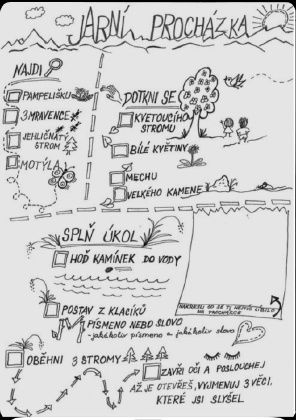 JARNÍ PROCHÁZKA
NAJDI
PAMPELIŠKU
3 MRAVENCE
JEHLIČNATÝ
STROM
MOTÝLA
DOTKNI SE
KVETOUCÍHO
STROMU
BÍLÉ KVĚTINY
MECHU
VELKÉHO KAMENE
SPLŇ ÚKOL
HOĎ KAMÍNEK DO VODY
POSTAV Z KLACÍKŮ
PÍSMENO NEBO SLOVO
-jakékoliv písmeno - jakékoliv slovo
NAKRESLI CO SE TI NEJVÍC LÍBILO
NA PROCHÁZCE
OBĚHNI 3 STROMY
ZAVŘI OČI A POSLOUCHEJ
AŽ JE OTEVŘEŠ, VYJMENUJ 3 VĚCI,
KTERÉ JSI SLYŠEL